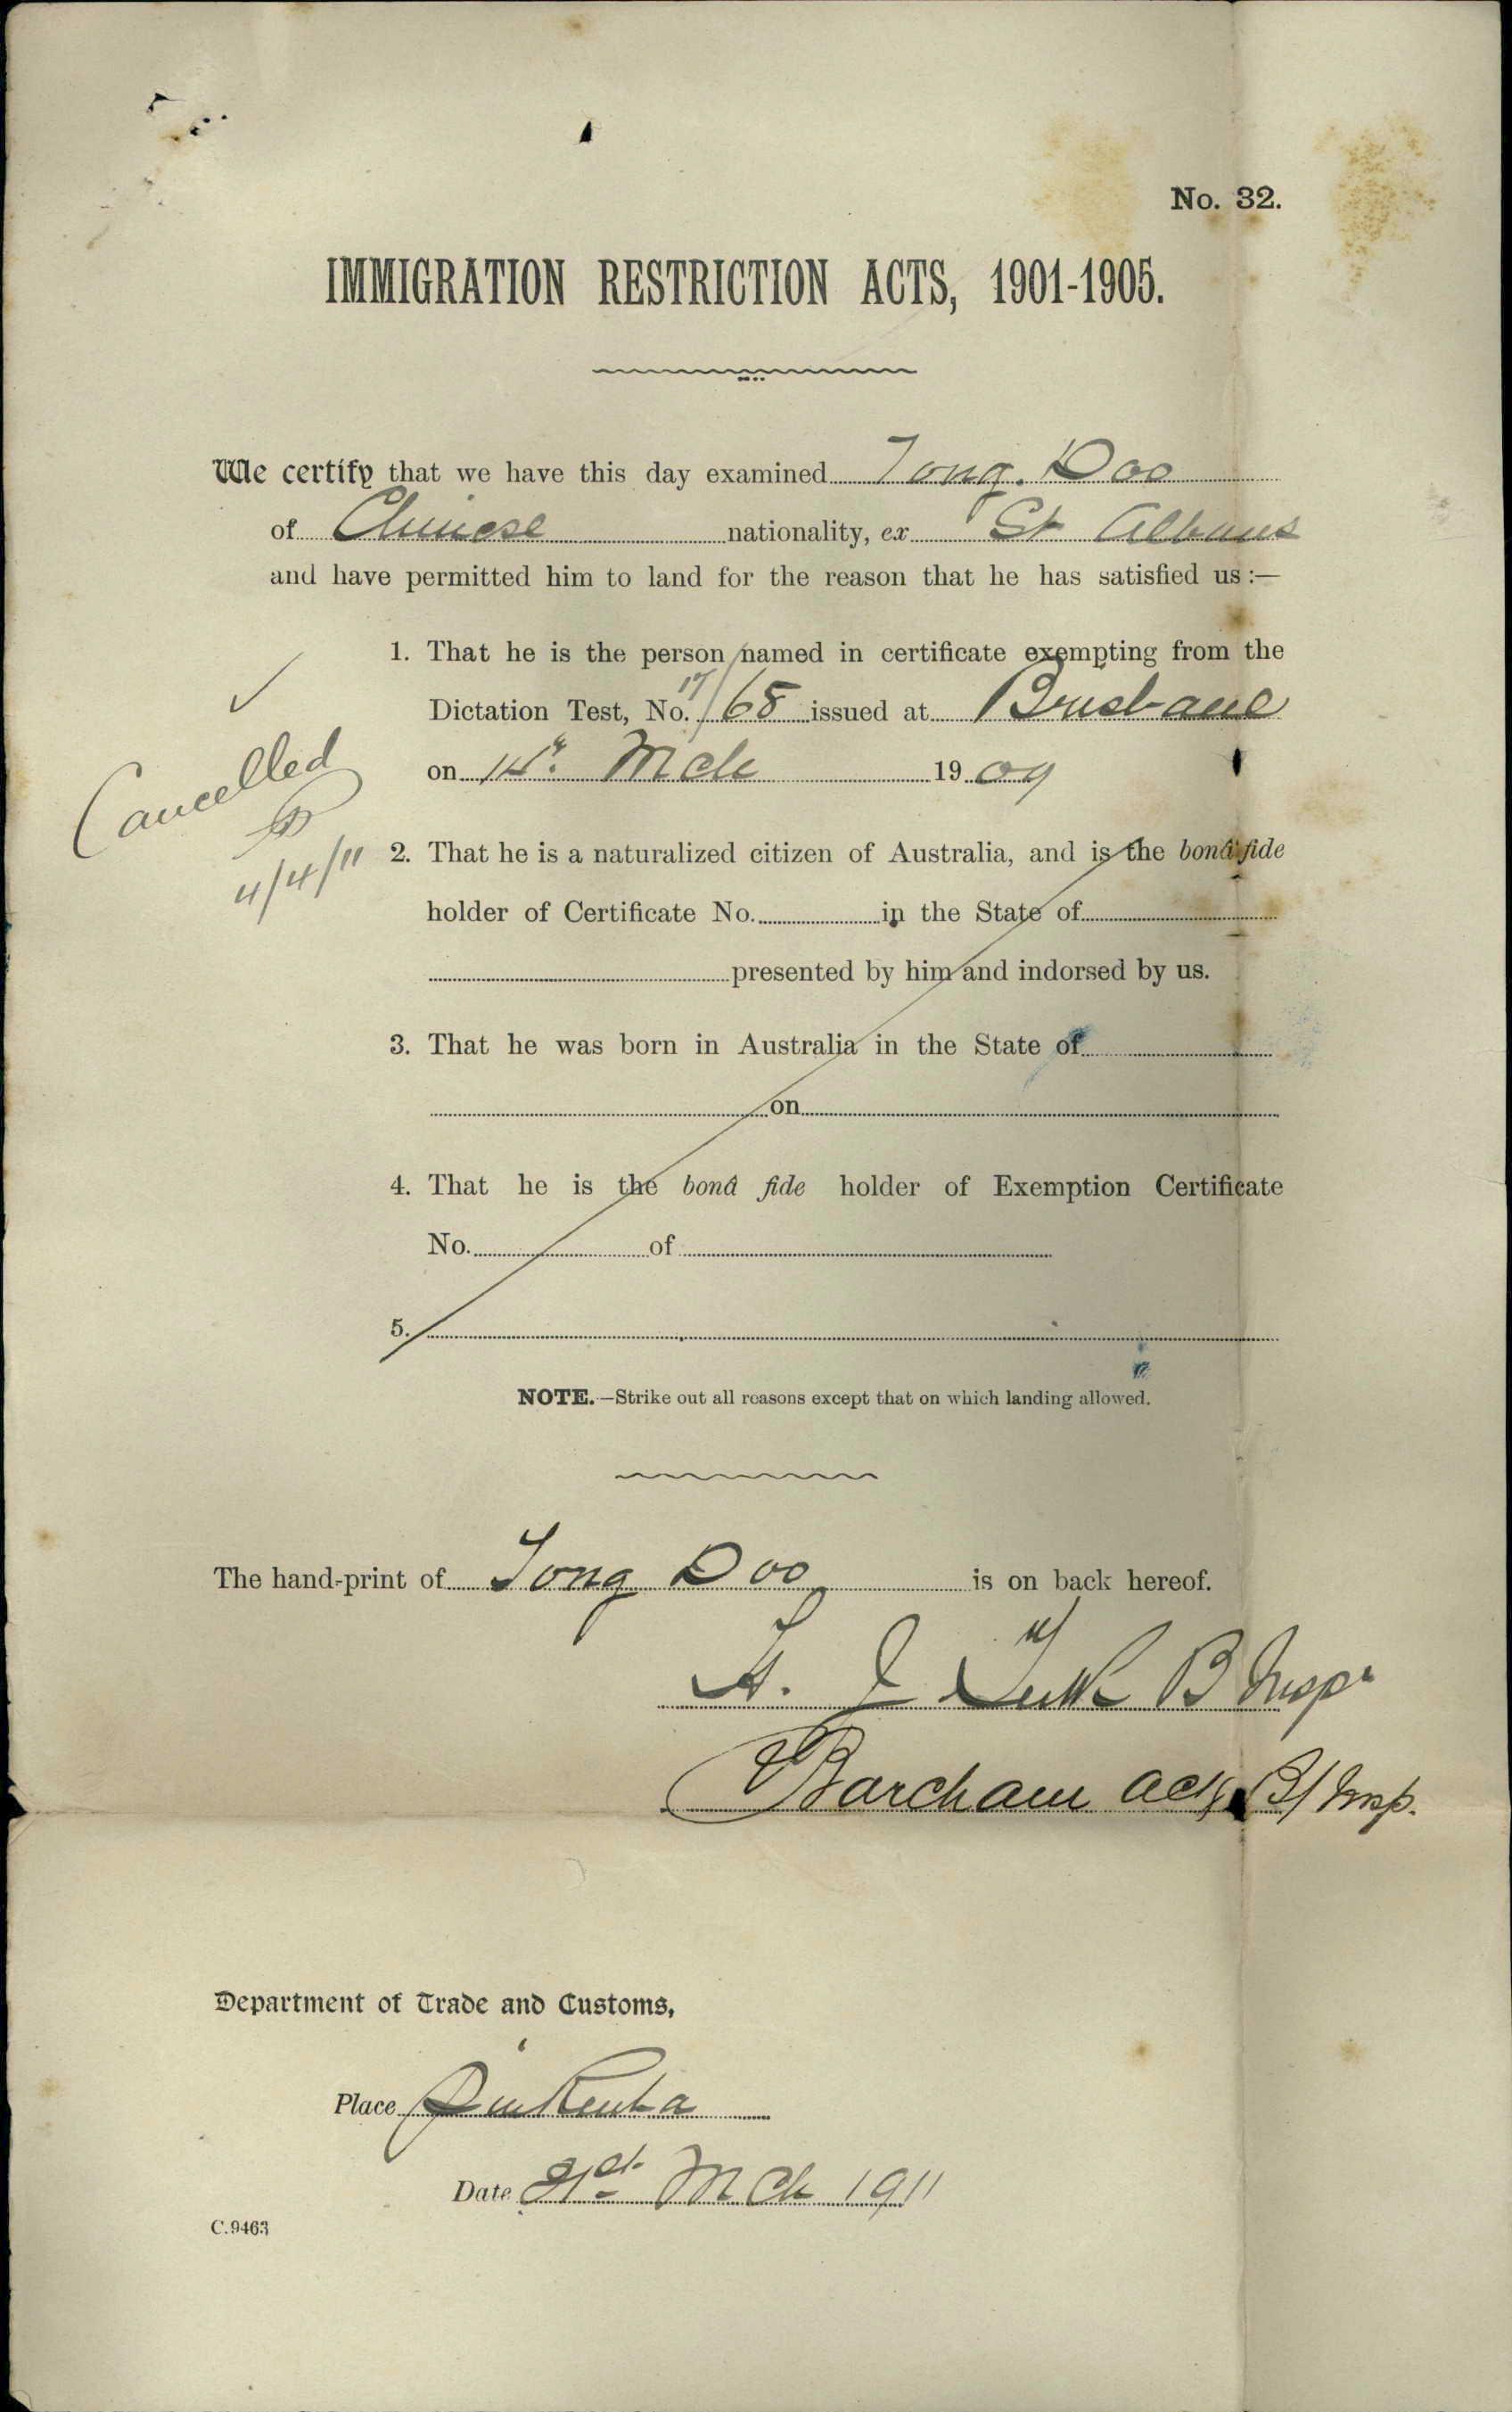 No. 32.
IMMIGRATION RESTRICTION ACTS, 1901-1905.
We certify that we have this day examined Tong. Doo
of Chinese nationality, ex St Albans
and have permitted him to land for the reason that he has satisfied us :—
1. That he is the person named in certificate exempting from the
Dictation Test, No. 17/68 issued at Brisbane
on Mch 19 09
Cancelled
4/4/11
2. That he is a naturalized citizen of Australia, and is the bonâ fide
holder of Certificate No. in the State of
presented by him and indorsed by us.
3. That he was born in Australia in the State of
on
4. That he is the bonâ fide holder of Exemption Certificate
No. of
5.
NOTE.—Strike out all reasons except that on which landing allowed.
The hand-print of Tong Doo is on back hereof.
B Inspr
Barcham actg B/ Insp.
Department of Trade and Customs,
Place Pinkenba
Date 31st Mch 1911
C.9463